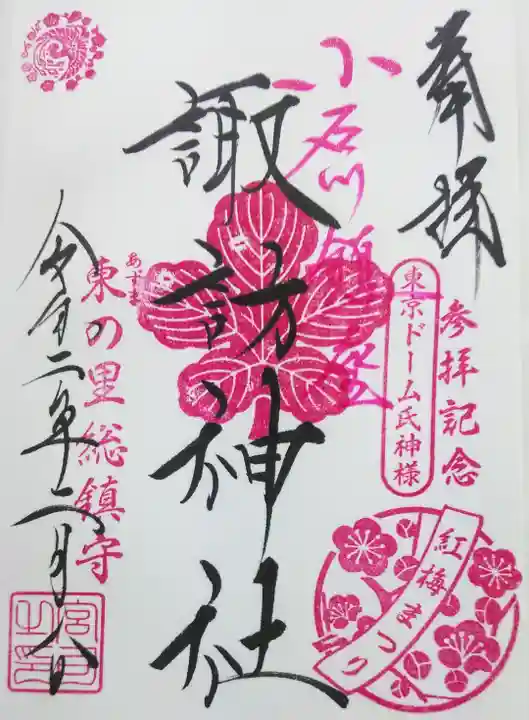 奉拝
参拝記念
東京ドーム氏神様
小石川
諏訪神社
紅梅まつり
あずま
東の里総鎮守
令和二年二月八日